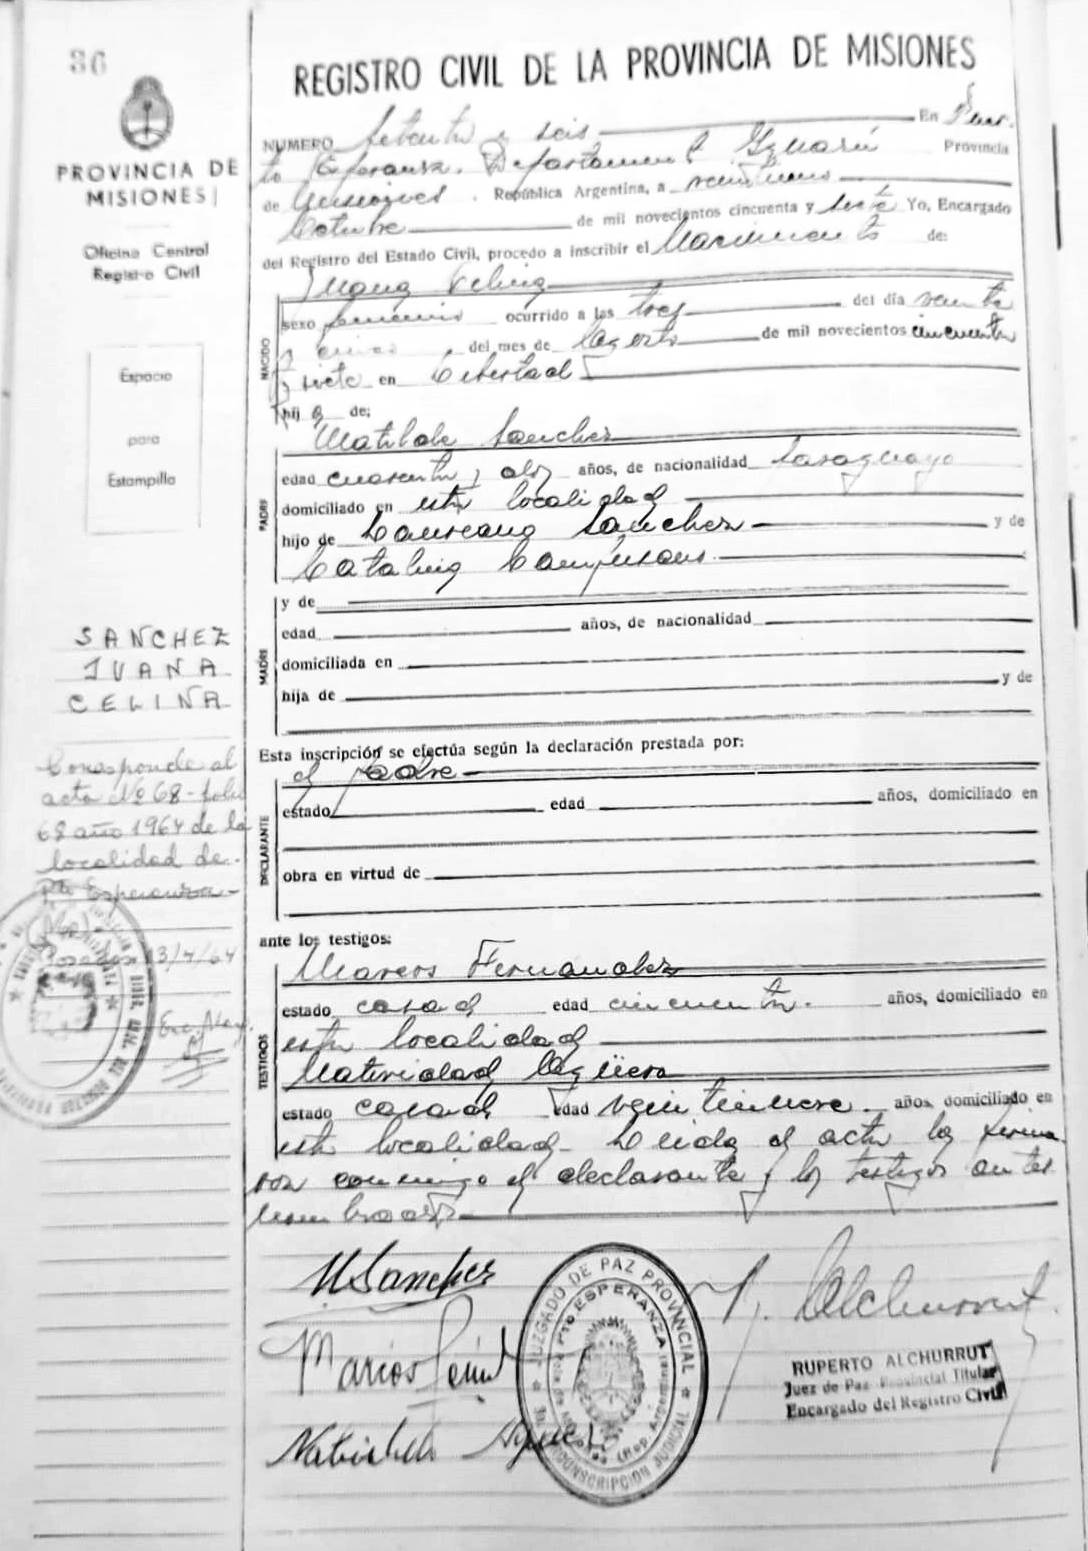 86
PROVINCIA DE
MISIONES
Oficina Central
Registro Civil
Espacio
para
Estampilla
SANCHEZ
JUANA
CELINA
Corresponde al
acta Nº 68 - folio
68 año 1964 de la
localidad de
Pto Esperanza
Posadas 13/7/64
REGISTRO CIVIL DE LA PROVINCIA DE MISIONES
NUMERO Setenta y seis En Puer-
to Esperanza. Departamento Iguazú Provincia
de Misiones. República Argentina, a veintiuno
Octubre de mil novecientos cincuenta y siete Yo, Encargado
del Registro del Estado Civil, procedo a inscribir el Nacimiento de:
NACIDO
Juana Celina
sexo femenino ocurrido a las tres del día veinte
y cinco del mes de Agosto de mil novecientos cincuenta
y siete en Libertad
hij a de:
PADRE
Matilde Sanchez
edad cuarenta y dos años, de nacionalidad Paraguayo
domiciliado en esta localidad
hijo de Laureano Sanchez y de
Catalina Campusano
MADRE
y de
edad años, de nacionalidad
domiciliada en
hija de y de
Esta inscripción se efectúa según la declaración prestada por:
el padre
DECLARANTE
estado edad años, domiciliado en
obra en virtud de
ante los testigos:
TESTIGOS
Marcos Fernandez
estado casado edad cincuenta. años, domiciliado en
esta localidad
Natividad Agüero
estado casado edad veintinueve años, domiciliado en
esta localidad - Leida el acta la firma-
ron conmigo el declarante y los testigos antes
nombrados
M Sanchez
Marcos
JUZGADO DE PAZ PROVINCIAL
PTO ESPERANZA
CIRCUNSCRIPCION JUDICIAL
Alchurrut
RUPERTO ALCHURRUT
Juez de Paz Provincial Titular
Encargado del Registro Civil